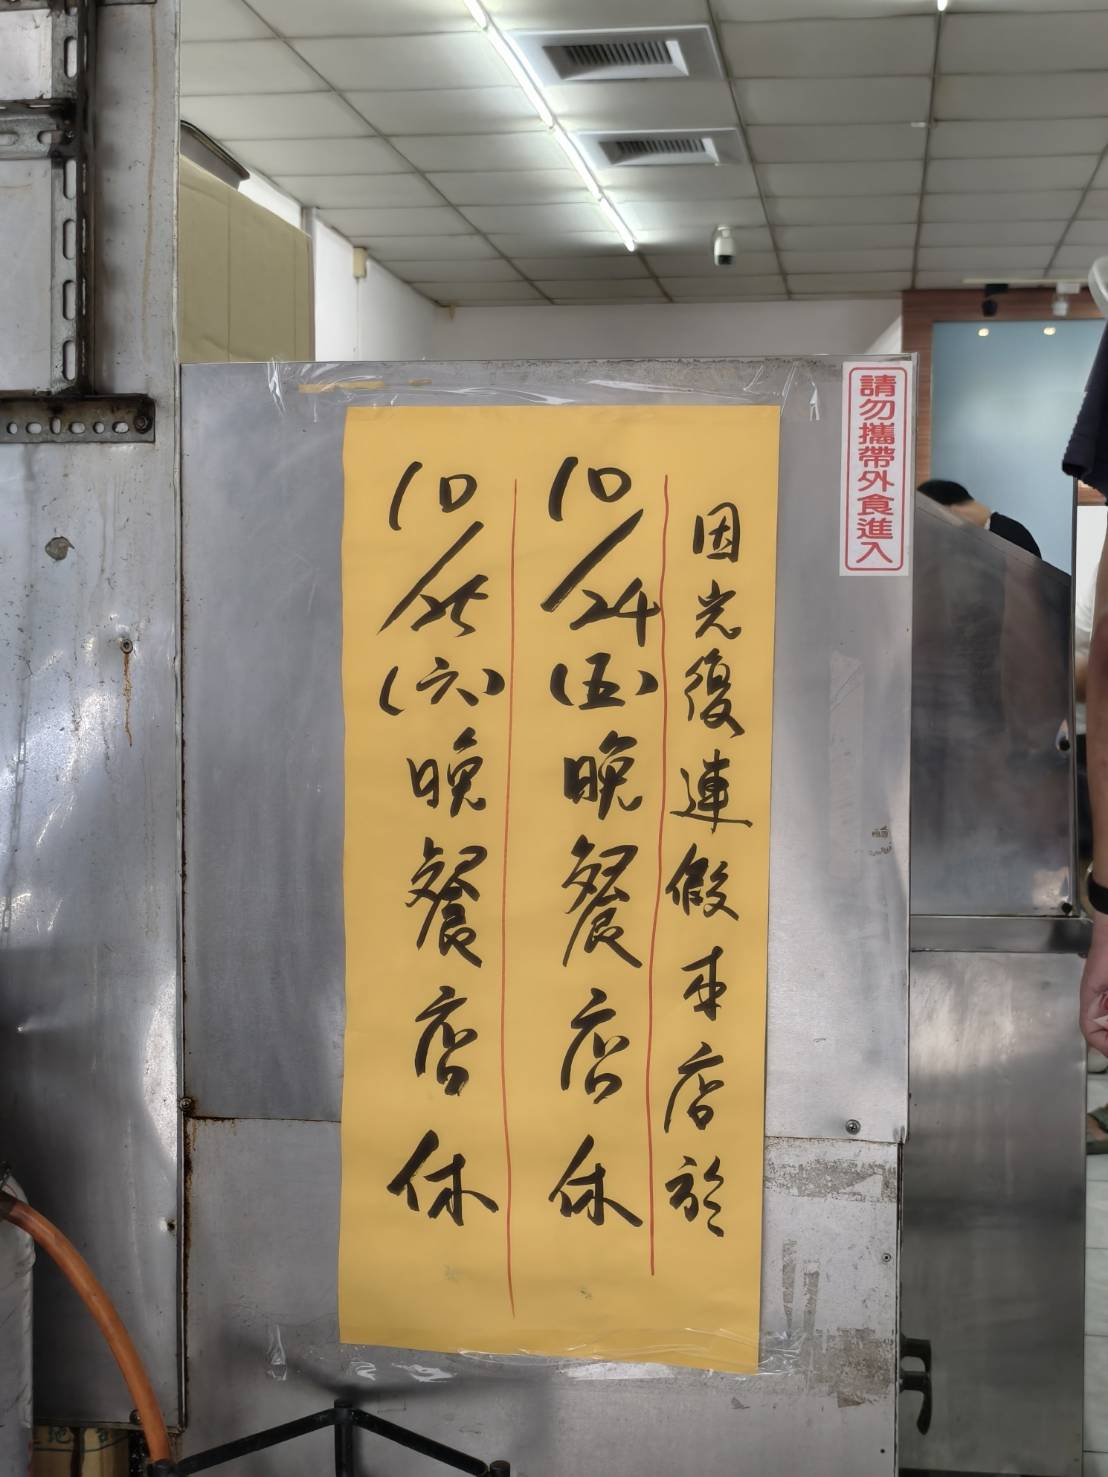 因光復連假本店於
10/24(五)晚餐店休
10/25(六)晚餐店休
請勿攜帶外食進入